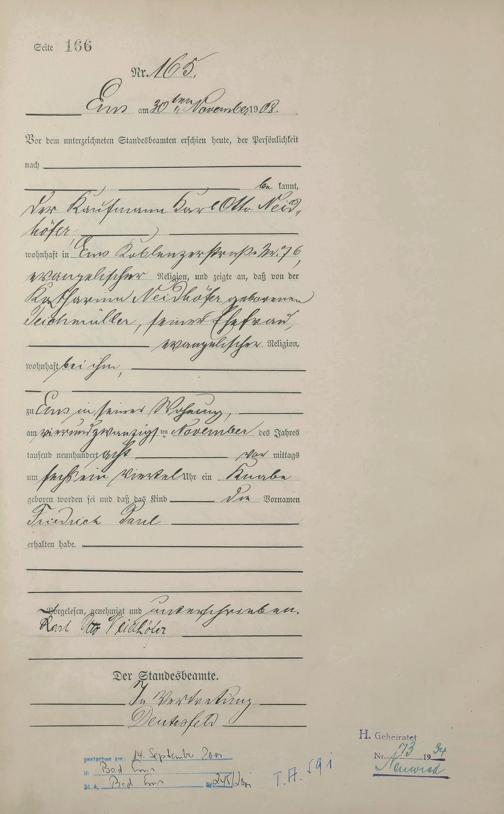 Seite 166
Nr. 165.
Ems am 30ten November 1908.
Vor dem unterzeichneten Standesbeamten erschien heute, der Persönlichkeit
nach
be kannt,
der Kaufmann Karl Otto Neid-
höfer
wohnhaft in Ems Koblenzerstraße Nr. 76,
evangelischer Religion, und zeigte an, daß von der
Katharina Neidhöfer geborenen
Teichmüller, seiner Ehefrau,
evangelischer Religion,
wohnhaft bei ihm,
zu Ems in seiner Wohnung,
am vierundzwanzigsten November des Jahres
tausend neunhundert acht vor mittags
um sechs ein viertel Uhr ein Knabe
geboren worden sei und daß das Kind die Vornamen
Friedrich Paul
erhalten habe.
Vorgelesen, genehmigt und unterschrieben.
Karl Otto Neidhöfer
Der Standesbeamte.
In Vertretung
gestorben am: 14. September 2001
in Bad Ems
St. A. Bad Ems Nr. /2001
T.A. 591
H. Geheiratet
Nr. 73 1934
Neuwied